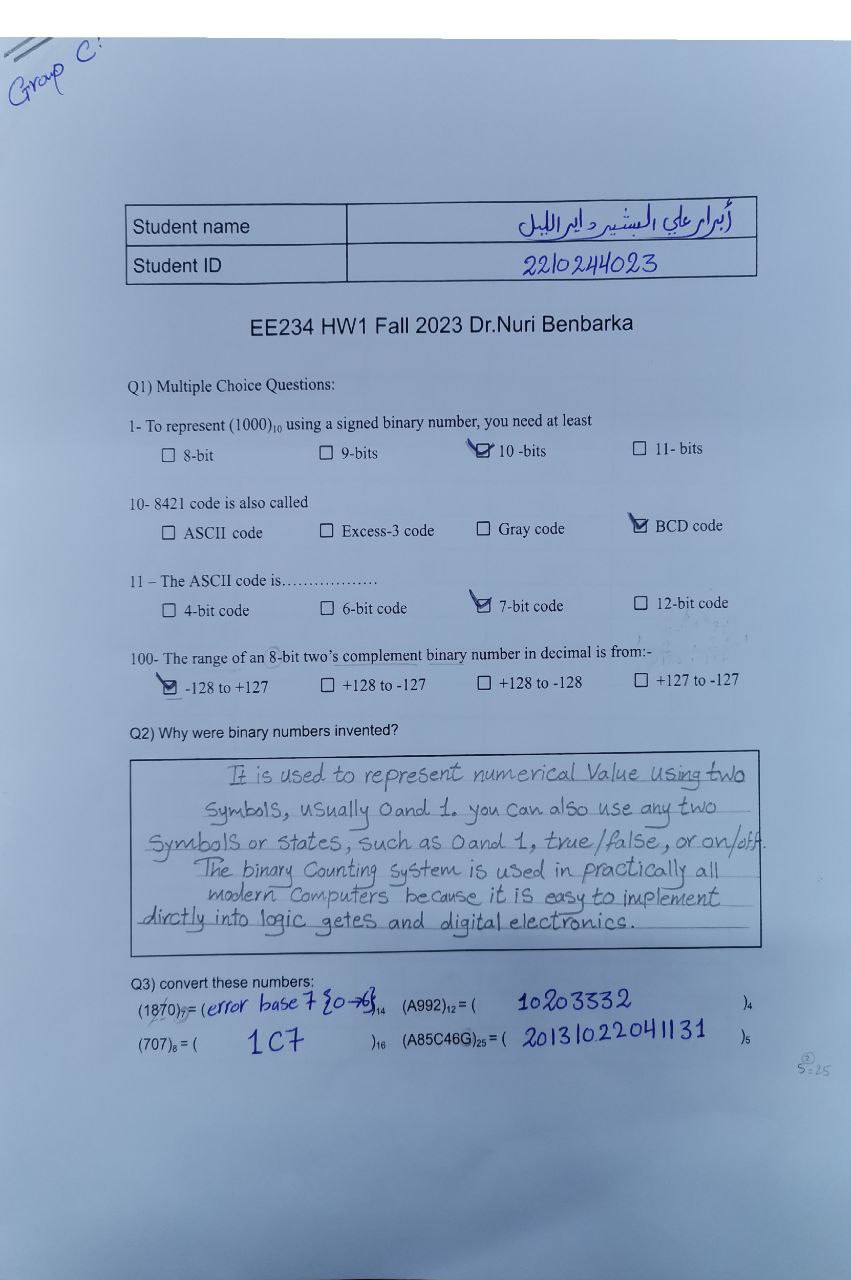 Group C:
Student name أبرار علي البشير داير الليل
Student ID 2210244023
EE234 HW1 Fall 2023 Dr.Nuri Benbarka
Q1) Multiple Choice Questions:
1- To represent (1000)₁₀ using a signed binary number, you need at least
8-bit 9-bits 10 -bits 11- bits
10- 8421 code is also called
ASCII code Excess-3 code Gray code BCD code
11 – The ASCII code is..................
4-bit code 6-bit code 7-bit code 12-bit code
100- The range of an 8-bit two’s complement binary number in decimal is from:-
-128 to +127 +128 to -127 +128 to -128 +127 to -127
Q2) Why were binary numbers invented?
It is used to represent numerical Value using two
Symbols, usually 0 and 1. you can also use any two
Symbols or states, such as 0 and 1, true/false, or on/off.
The binary Counting System is used in practically all
modern Computers because it is easy to implement
dirctly into logic getes and digital electronics.
Q3) convert these numbers:
(1870)₇= (error base 7 {0→6})₁₄ (A992)₁₂ = ( 10203332 )₄
(707)₈ = ( 1C7 )₁₆ (A85C46G)₂₅ = ( 20131022041131 )₅
5²=25